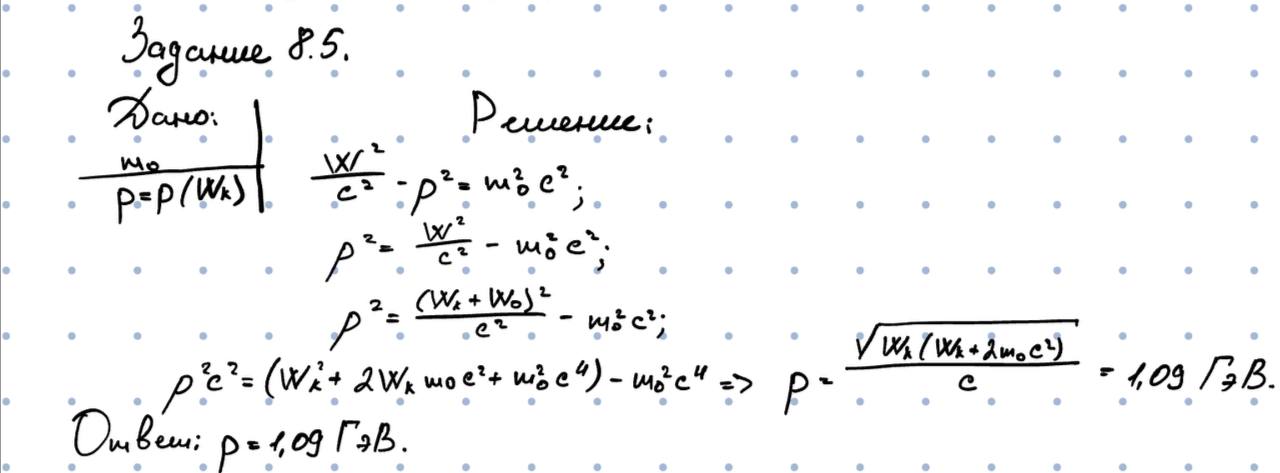 Задание 8.5.
Дано:
Решение:
m₀
p=p(Wₖ)
W²/c² - p² = m₀²c²;
p² = W²/c² - m₀²c²;
p² = (Wₖ + W₀)²/c² - m₀²c²;
p²c² = (Wₖ² + 2Wₖ m₀c² + m₀²c⁴) - m₀²c⁴ => p = √(Wₖ(Wₖ+2m₀c²))/c = 1,09 ГэВ.
Ответ: p = 1,09 ГэВ.